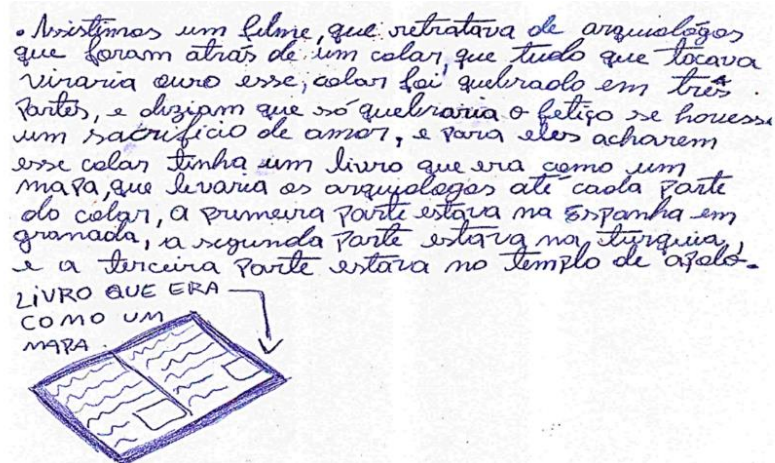 . Assistimos um filme, que retratava de arquiológos
que foram atrás de um colar, que tudo que tocava
viraria ouro esse, colar foi quebrado em três
partes, e diziam que só quebraria o fetiço se houvesse
um sacrificio de amor, e para eles acharem
esse colar tinha um livro que era como um
mapa, que levaria os arquiologos até cada parte
do colar, a primeira parte estava na Espanha em
granada, a segunda parte estava na turquia,
e a terceira parte estava no templo de apolo.
LIVRO QUE ERA
COMO UM
MAPA.